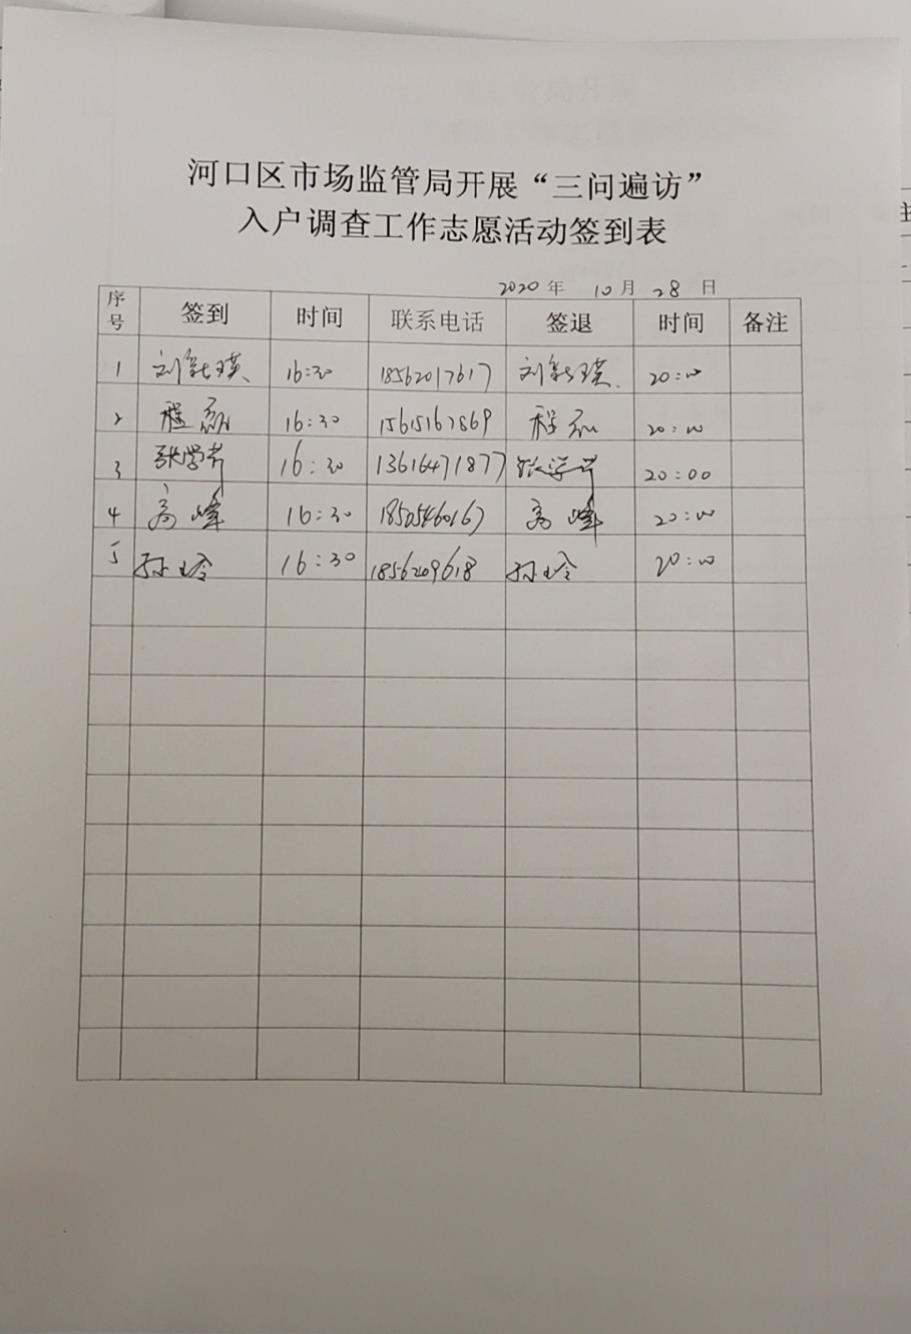 河口区市场监管局开展“三问遍访”
入户调查工作志愿活动签到表
2020 年 10 月 28 日
序号 签到 时间 联系电话 签退 时间 备注
1 刘 16:30 18562017617 刘 20:00
2 程磊 16:30 15615167869 程磊 20:00
3 张学 16:30 13616471877 张学 20:00
4 高峰 16:30 18505460167 高峰 20:00
5 孙玉玲 16:30 1856209618 孙玉玲 20:00